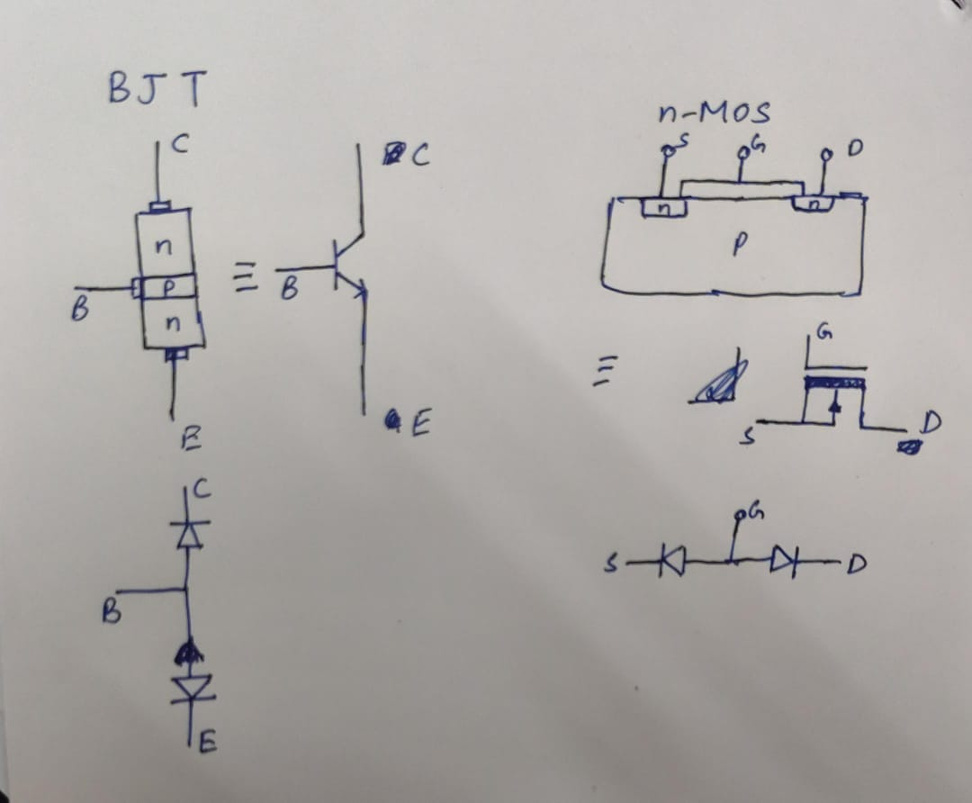 BJT
C
n
B
p
n
E
≡
C
B
E
C
B
E
n-MOS
S G D
n n
p
≡
G
S D
G
S D